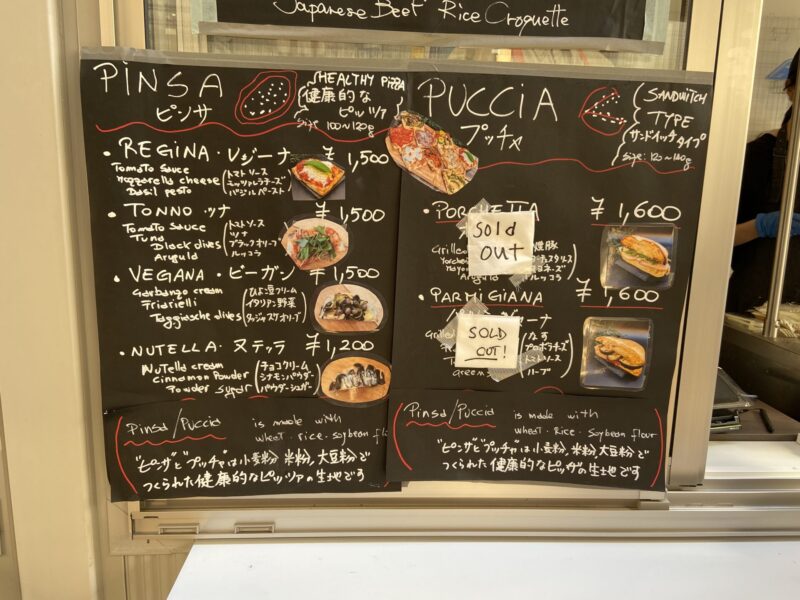 Japanese Beef Rice Croquette
PiNSA
ピンサ
HEALTHY PiZZA
健康的な
ピッツァ
Size 100~120g
• REGiNA • レジーナ ¥ 1,500
Tomato sauce
mozzarella cheese
Basil pesto
トマトソース
モッツァレラチーズ
バジルペースト
• TONNO • ツナ ¥ 1,500
Tomato sauce
Tuna
Black olives
Arugula
トマトソース
ツナ
ブラックオリーブ
ルッコラ
• VEGANA • ビーガン ¥ 1,500
Garbanzo cream
Friarielli
Taggiasche olives
ひよこ豆クリーム
イタリアン野菜
タッジャスケオリーブ
• NUTELLA • ヌテッラ ¥ 1,200
Nutella cream
Cinnamon Powder
Powder sugar
チョコクリーム
シナモンパウダー
パウダーシュガー
Pinsa/Puccia is made with
wheat • rice • soybean fl
"ピンサ"と"プッチャ"は小麦粉, 米粉, 大豆粉で
つくられた健康的なピッツァの生地です
PUCCiA
プッチャ
SANDWITCH
TYPE
サンドイッチタイプ
Size: 120~140g
• PORCHETTA ¥ 1,600
Sold
OUT
Grilled
ルッコラ
• PARMiGiANA ¥ 1,600
SOLD
OUT!
なす
プロボラチーズ
トマトソース
ハーブ
Pinsa/Puccia is made with
wheat • Rice • Soybean flour
"ピンサ"と"プッチャ"は小麦粉, 米粉, 大豆粉で
つくられた健康的なピッザの生地です